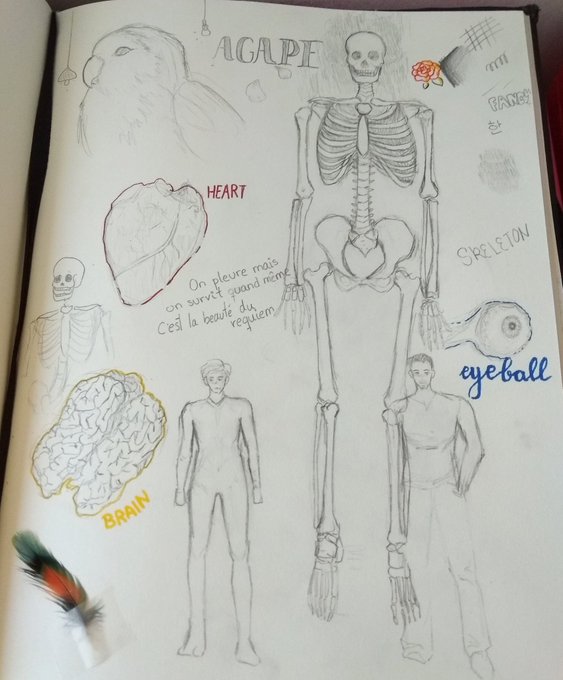 AGAPE
FANCY
한
HEART
SKELETON
On pleure mais
on survit quand même
C'est la beauté du
requiem
eyeball
BRAIN